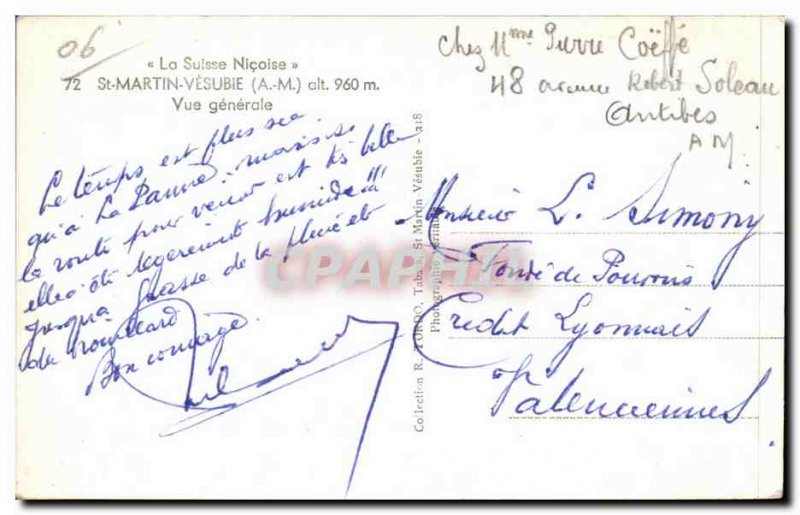 06
« La Suisse Niçoise »
72 St-MARTIN-VÉSUBIE (A.-M.) alt. 960 m.
Vue générale
Chez Mme Pierre Coëffé
48 avenue Robert Soleau
Antibes
AM
Le temps est plus sec
qu'à La Panne, mais si
la route pour venir est très belle
elle a été legerement humide !!!
jusqu'à Grasse de la pluie et
du brouillard
Bon courage.
Collection R. TORDO, Tabacs, St Martin-Vésubie - 218
Photographie véritable
Monsieur L. Simony
Fondé de Pouvoirs
Credit Lyonnais
Valenciennes
CPARAMA